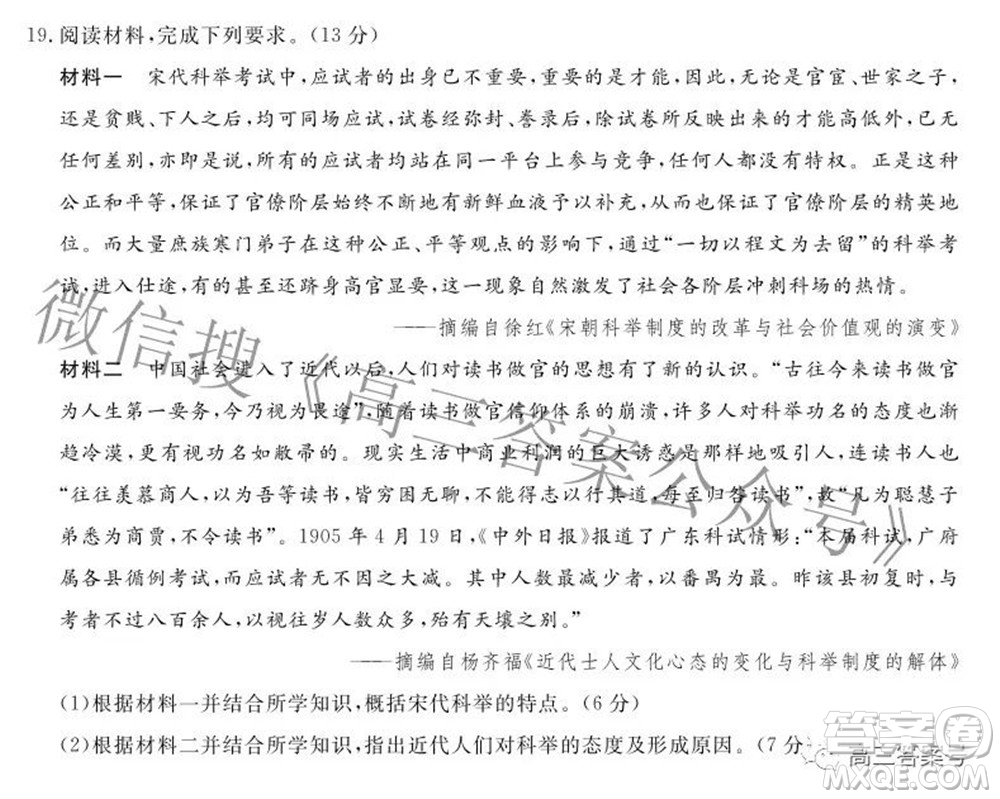 19.阅读材料,完成下列要求。(13 分)
材料一 宋代科举考试中,应试者的出身已不重要,重要的是才能,因此,无论是官宦、世家之子,
还是贫贱、下人之后,均可同场应试,试卷经弥封、誊录后,除试卷所反映出来的才能高低外,已无
任何差别,亦即是说,所有的应试者均站在同一平台上参与竞争,任何人都没有特权。正是这种
公正和平等,保证了官僚阶层始终不断地有新鲜血液予以补充,从而保证了官僚阶层的精英地
位。而大量庶族寒门弟子在这种公正、平等观点的影响下,通过“一切以程文为去留”的科举考
试,进入仕途,有的甚至还跻身高官显要,这一现象自然激发了社会各阶层冲刺科场的热情。
——摘编自徐红《宋朝科举制度的改革与社会价值观的演变》
材料二 中国社会进入了近代以后,人们对读书做官的思想有了新的认识。“古往今来读书做官
为人生第一要务,今乃视为畏途”,随着读书做官信仰体系的崩溃,许多人对科举功名的态度也渐
趋冷漠,更视功名如敝帚的。现实生活中商业利润的巨大诱惑是那样地吸引人,连读书人也
“往往羡慕商人,以为吾等读书,皆穷困无聊,不能得志以行其道,每至归咎读书”,故“凡为聪慧子
弟悉为商贾,不令读书”。1905 年 4 月 19 日,《中外日报》报道了广东科试情形:“本届科试,广府
属各县循例考试,而应试者无不因之大减。其中人数最减少者,以番禺为最。昨该县初复时,与
考者不过八百余人,以视往岁人数众多,殆有天壤之别。”
——摘编自杨齐福《近代士人文化心态的变化与科举制度的解体》
(1)根据材料一并结合所学知识,概括宋代科举的特点。(6 分)
(2)根据材料二并结合所学知识,指出近代人们对科举的态度及形成原因。(7 分
微信搜《高三答案公众号》
高三答案号
答案圈
MXQE.COM